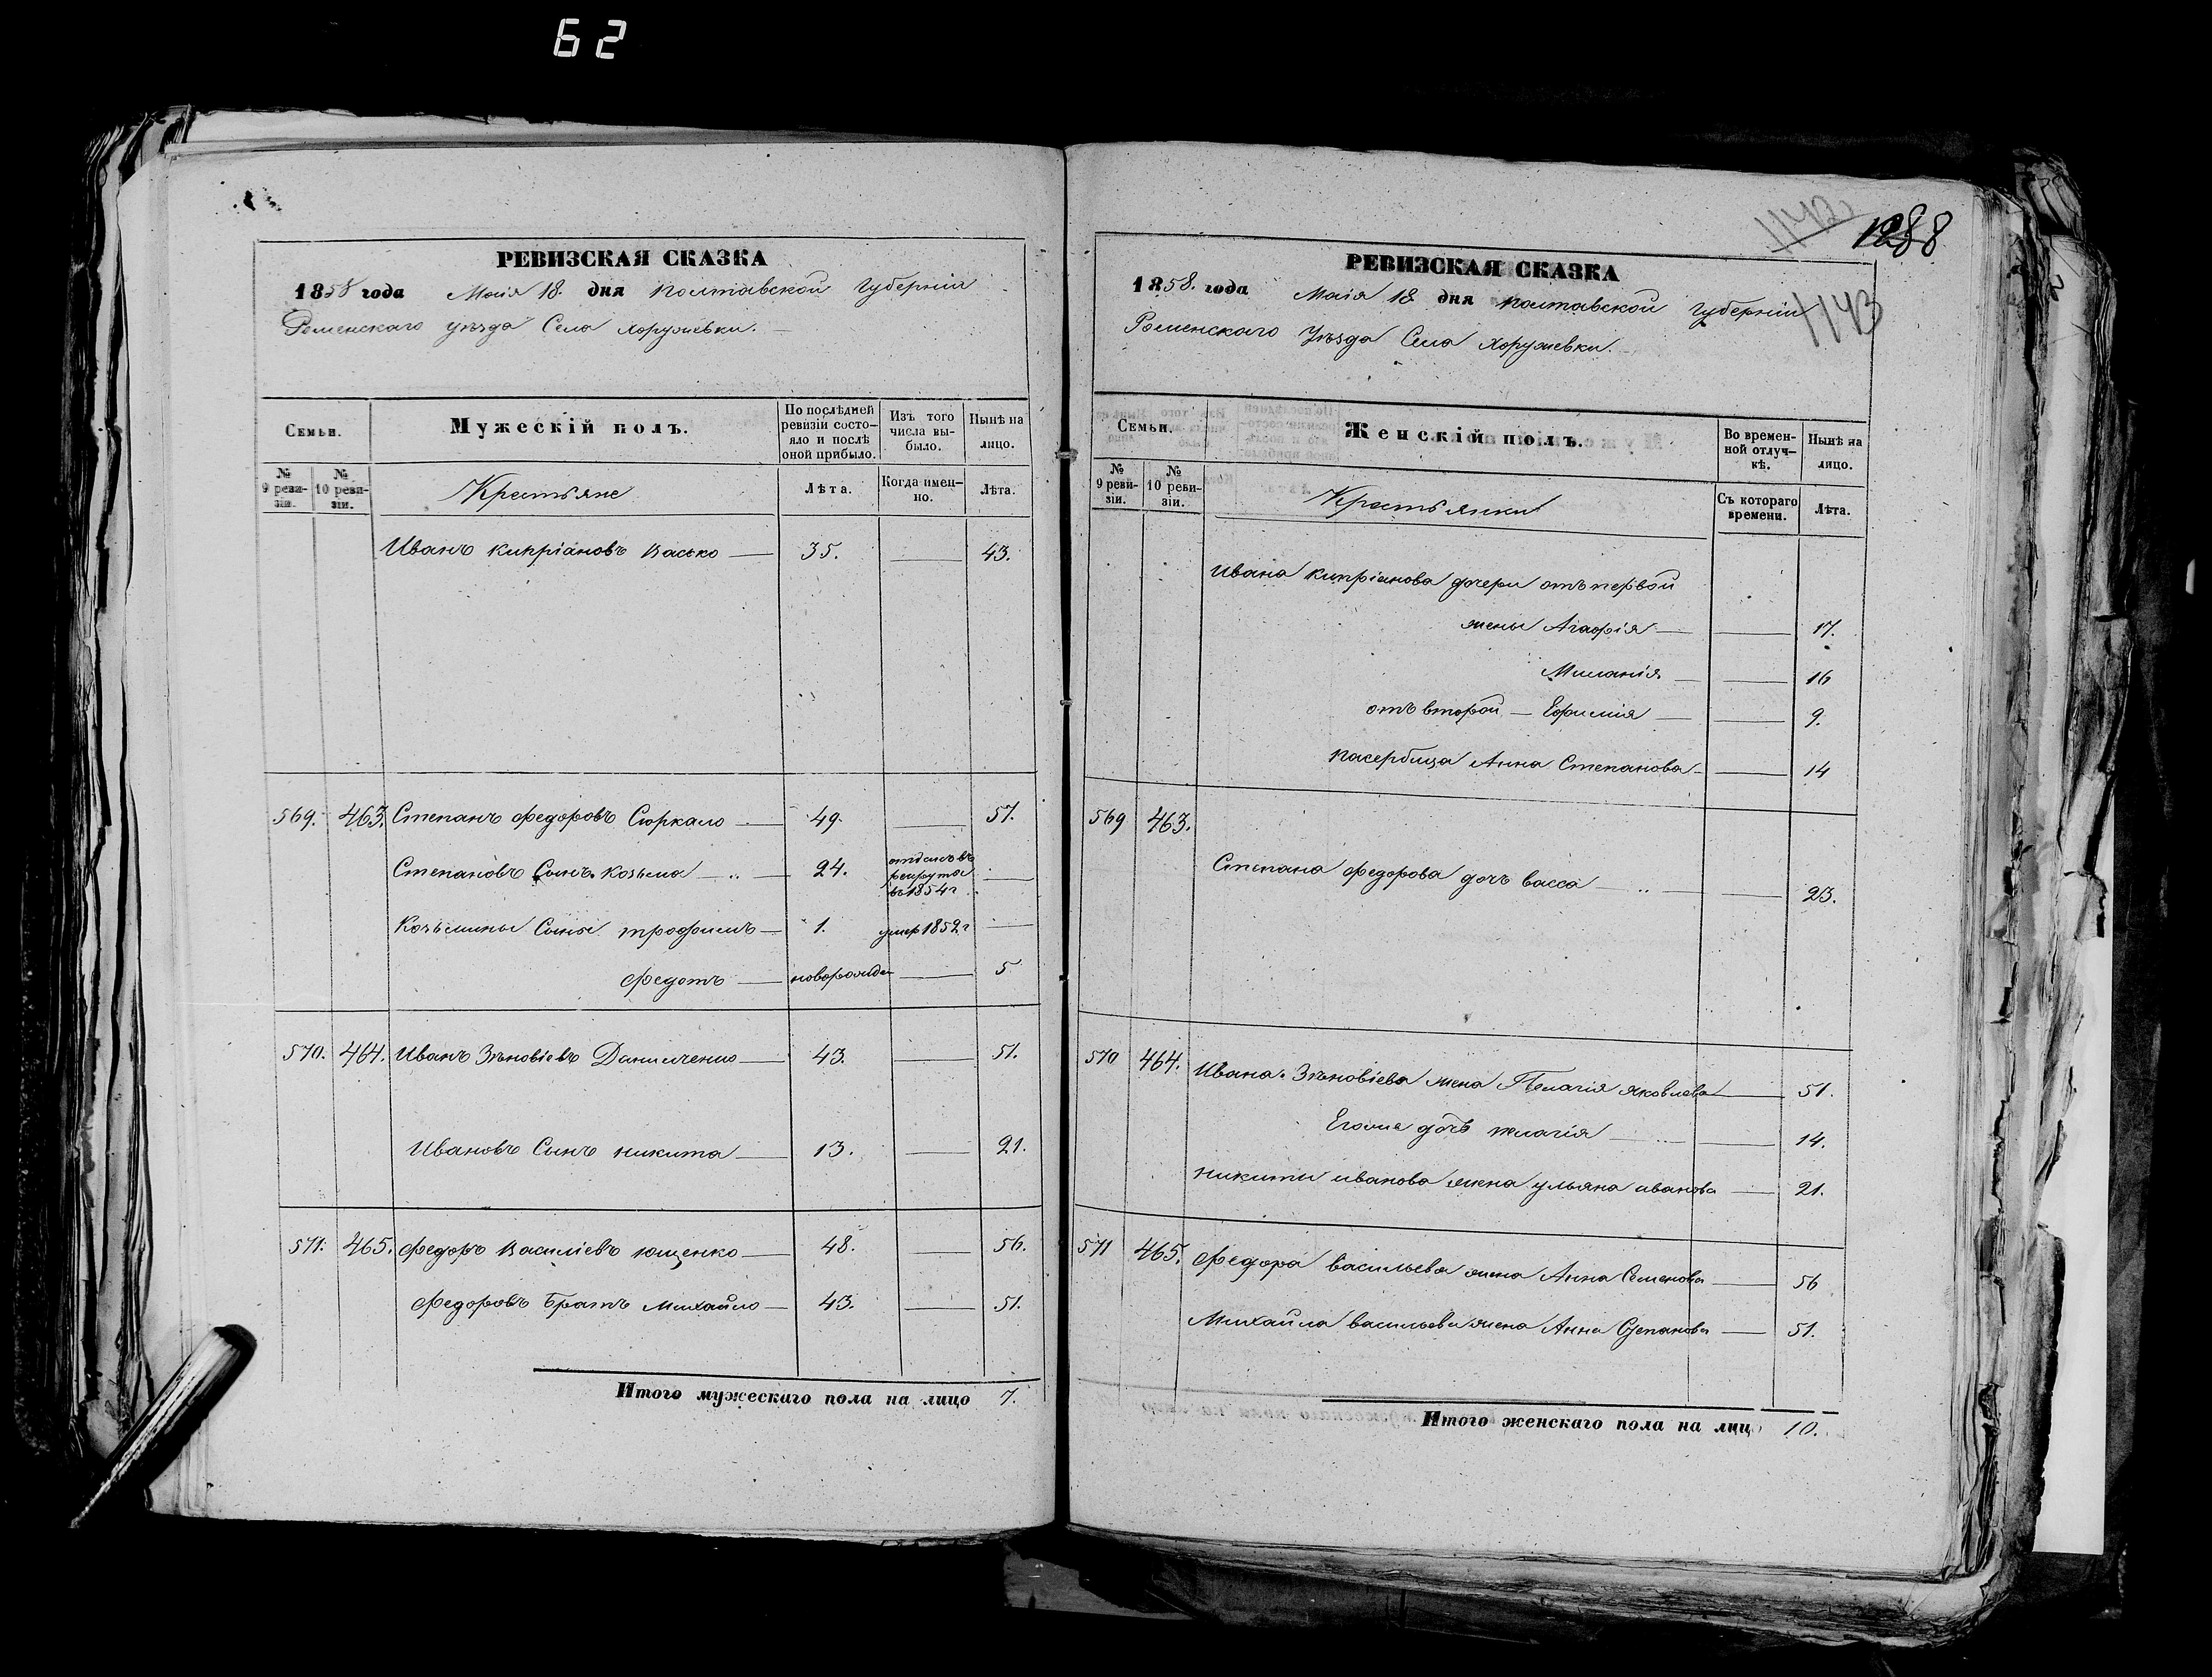 62
РЕВИЗСКАЯ СКАЗКА
1858 года Маія 18. дня Полтавской Губерніи
Роменскаго уѣзда Села Хоружевки.
Семьи.
Мужескій полъ.
По послѣдней ревизіи состояло и послѣ оной прибыло.
Изъ того числа выбыло.
Нынѣ на лицо.
№ 9 ревизіи.
№ 10 ревизіи.
Крестьяне
Лѣта.
Когда именно.
Лѣта.
Иванъ Кипріановъ Васько — 35. — 43.
569. 463. Степанъ Федоровъ Сюркало — 49. — 57.
Степановъ Сынъ Козьма — 24. отданъ въ рекруты въ 1854 г —
Козьмины Сыны Трофимъ — 1. умер 1852 г —
Федотъ — новорожден — 5
570. 464. Иванъ Зѣновіевъ Данильченко — 43. — 51.
Ивановъ Сынъ Никита — 13. — 21.
571. 465. Федоръ Василіевъ Ющенко — 48. — 56.
Федоровъ Братъ Михайло — 43. — 51.
Итого мужескаго пола на лицо 7.
1142
1288
1143
РЕВИЗСКАЯ СКАЗКА
1858. года Маія 18 дня Полтавской Губерніи
Роменскаго Уѣзда Села Хоружевки.
Семьи.
Женскій полъ.
Во временной отлучкѣ.
Нынѣ на лицо.
№ 9 ревизіи.
№ 10 ревизіи.
Крестьянки
Съ котораго времени.
Лѣта.
Ивана Кипріанова дочери отъ первой
жены Агафія — — 17.
Миланія — — 16
отъ второй — Ефимія — — 9.
Пасербица Анна Степанова — — 14
569 463.
Степана Федорова дочь Васса — — 23.
570 464. Ивана Зѣновіева жена Пелагія Яковлева — 51.
Егоже дочь Пелагія — — 14.
Никиты Иванова жена Ульяна Иванова — 21.
571 465. Федора Васильева жена Анна Семенова — 56
Михайла Васильева жена Анна Степанова — 51.
Итого женскаго пола на лиц 10.